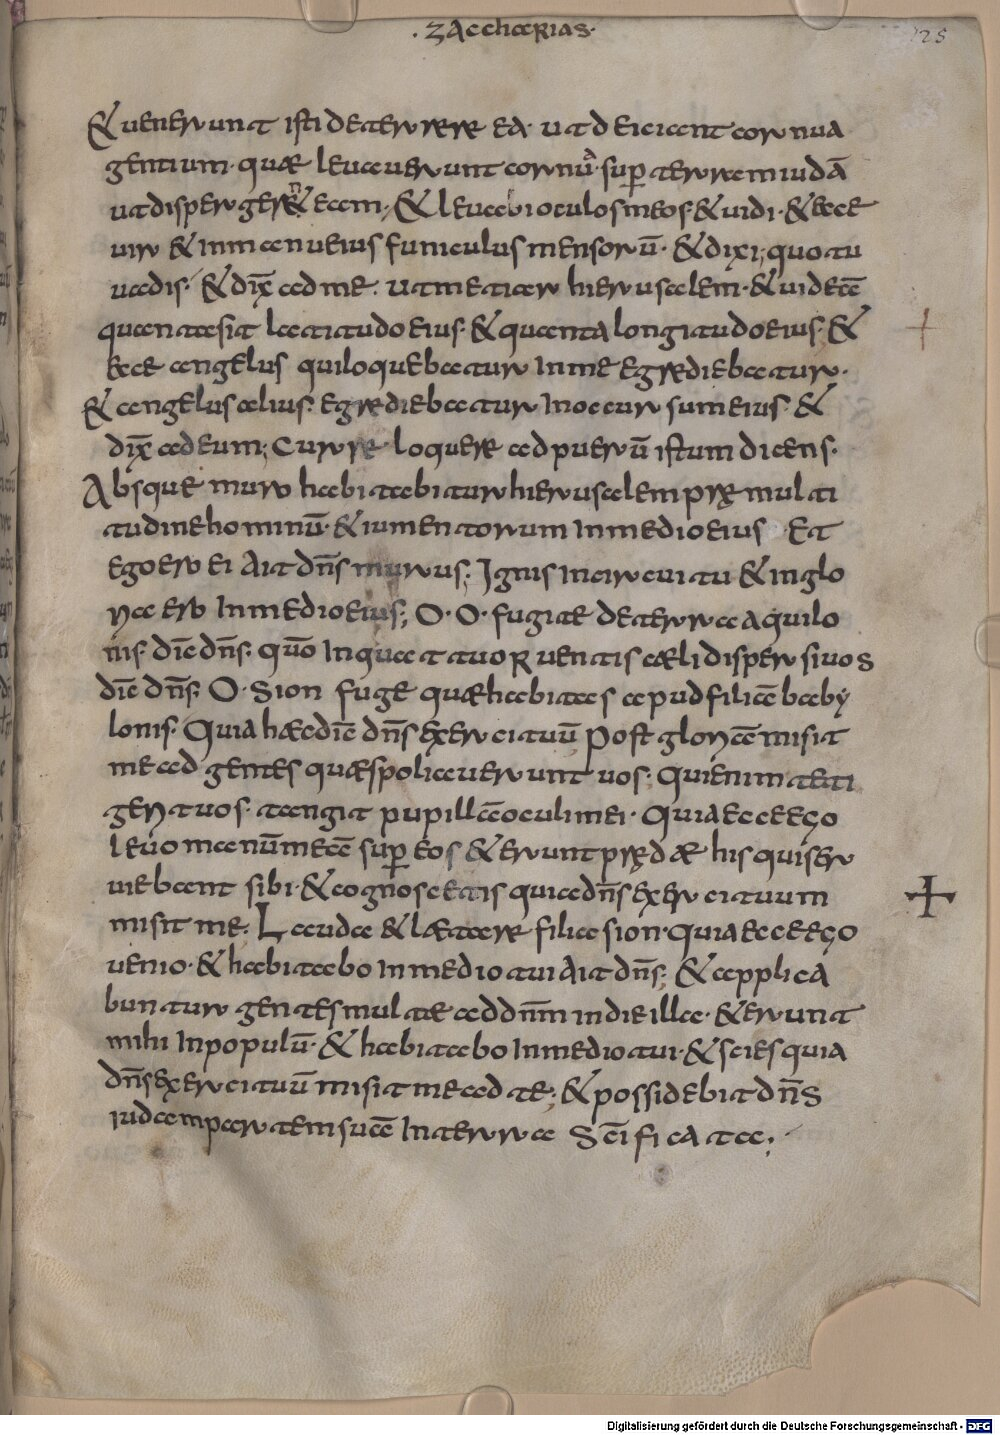 · zaccharias ·
125
& uenerunt isti deterrere ea· ut deiciant cornua
gentium· quae leuauerunt cornũ· sup terram iudã
ut dispergeren& eam; & leuabi oculos meos· & uidi· & ecce
uir & in manu eius funiculus mensorũ· & dixi; quo tu
uadis· & dix̄ ad me· ut metiar hierusalem· & uideā
quanta sit latitudo eius· & quanta longitudo eius· &
ecce angelus qui loquebatur in me egrediebatur·
& angelus alius· egrediebatur in occursum eius· &
dix̄ ad eum; Curre loquere ad puerũ istum dicens·
Absque muro habitabitur hierusalem prę multi
tudine hominũ· & iumentorum in medio eius Et
ego ero ei Ait dñs murus; Ignis in circuitu & in glo
ria ero in medio eius; O· O· fugite de terra aquilo
nis· dic̄ dñs· qūo in quattuor uentis caeli dispersi uos
dic̄ dñs; O· Sion fuge quae habitas apud filiā baby
lonis· Quia haec dic̄ dñs exercituũ Post gloriā misit
me ad gentes quae spoliauerunt uos; Qui enim teti
gerit uos· tangit pupillā oculi mei· Quia ecce ego
leuo manũ meā sup eos & erunt prędae his qui ser
uiebant sibi· & cognoscetis quia dñs exercituum
misit me; Lauda & laetare filia sion· quia ecce ego
uenio· & habitabo in medio tui Ait dñs; & applica
buntur gentes multae ad dñm in die illa· & erunt
mihi in populũ· & habitabo in medio tui· & scies quia
dñs exercituũ misit me ad te; & possidebit dñs
iudam partem suā In terra Sc̄ificata;
Digitalisierung gefördert durch die Deutsche Forschungsgemeinschaft - DFG